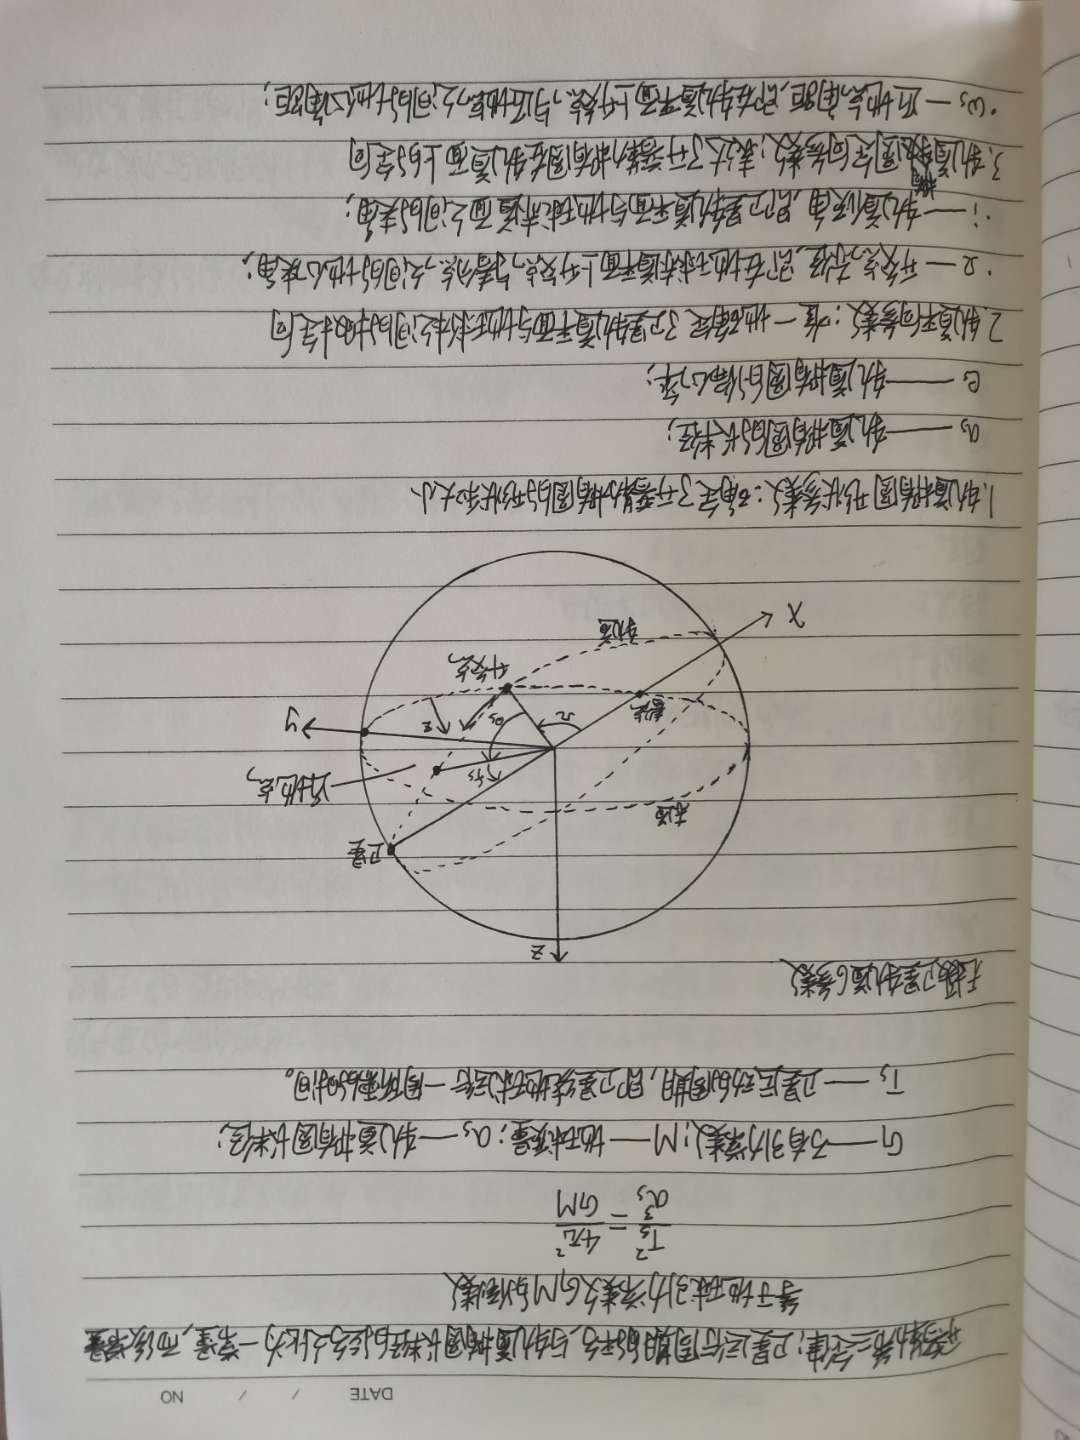 DATE / / NO
开普勒第三定律:卫星运行周期的平方,与轨道椭圆长半径的立方之比为一常量,而该常量
等于地球引力常数GM的倒数
Ts²/as³ = 4π²/GM
G——万有引力常数;M——地球质量;as——轨道椭圆长半径;
Ts——卫星运动的周期,即卫星绕地球运行一周所需的时间。
无摄卫星轨道6参数
Z
卫星
赤道
近地点
fs
ωs
i
Ω
y
春分点
升交点
轨道
X
1.轨道椭圆形状参数:确定了开普勒椭圆的形状和大小
as——轨道椭圆的长半径;
es——轨道椭圆的偏心率;
2.轨道平面参数:唯一地确定了卫星轨道平面与地球体之间的相对定向
·Ω—升交点赤经,即在地球赤道平面上升交点与春分点之间的地心夹角;
·i——轨道倾角,即卫星轨道平面与地球赤道面之间的夹角;
3.轨道椭圆定向参数:表达了开普勒椭圆在轨道面上的定向
·ωs—近地点角距,即在轨道平面上升交点与近地点之间的地心角距;